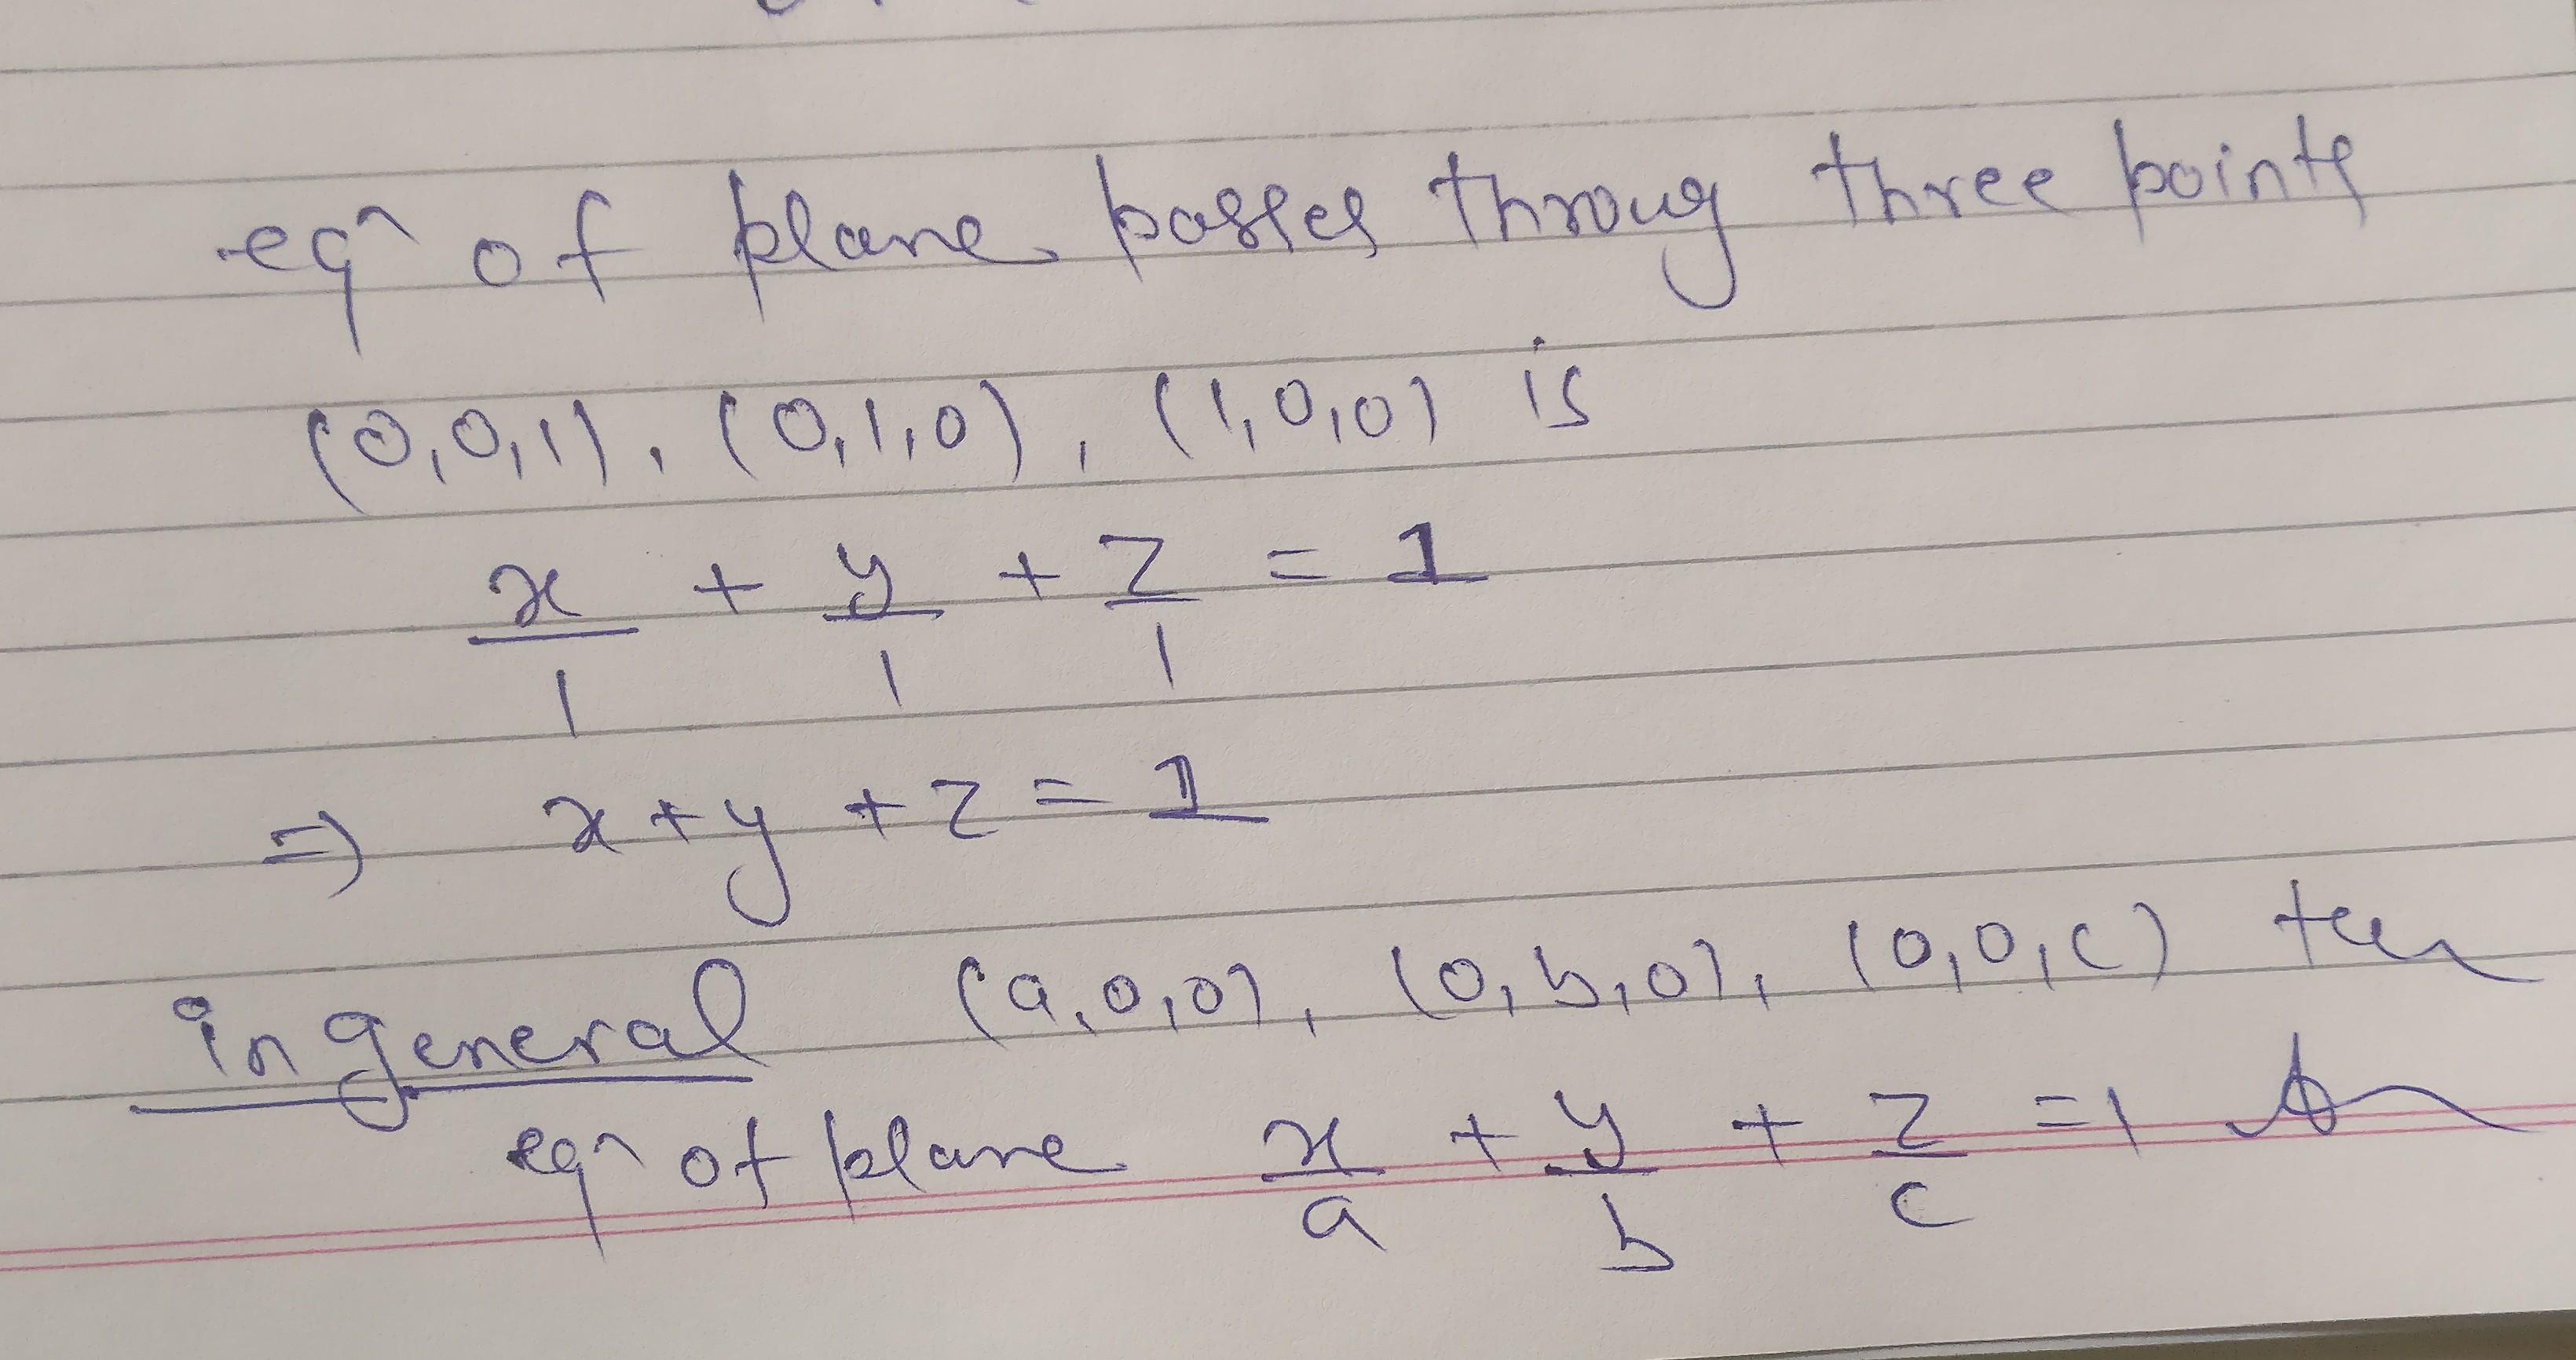 eqⁿ of plane passes throug three points
(0,0,1), (0,1,0), (1,0,0) is
x/1 + y/1 + z/1 = 1
⇒ x+y+z=1
in general (a,0,0), (0,b,0), (0,0,c) ten
eqⁿ of plane x/a + y/b + z/c =1